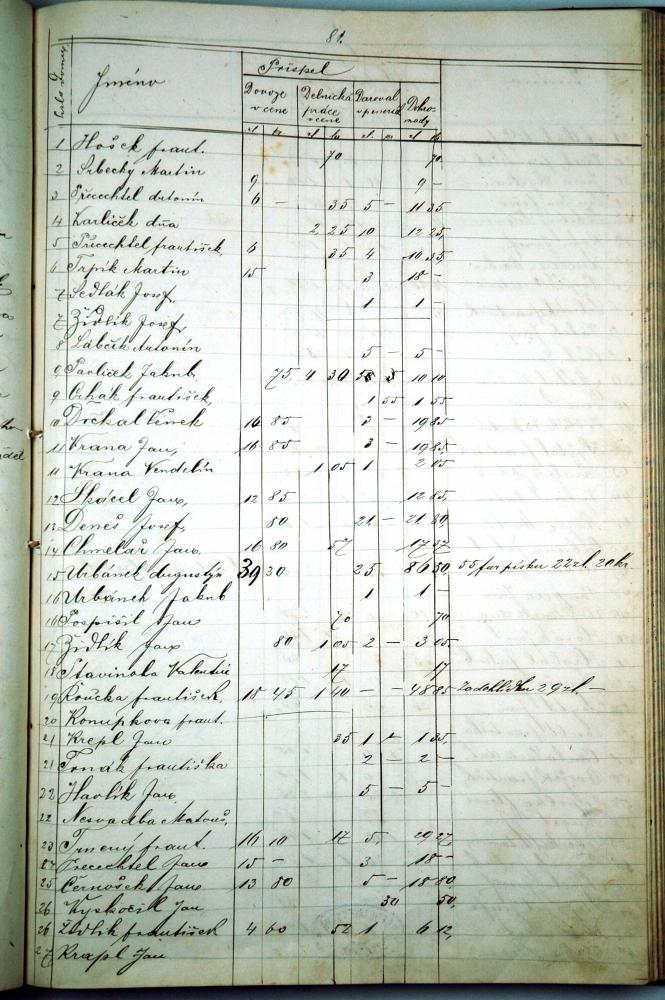 81.
Číslo domu
Jméno
Přispěl
Dovoze v ceně
Dělnická práce v ceně
Daroval v penězích
Dohromady
zl. kr zl. kr zl. kr zl. kr
1 Hošek frant. 70 70
2 Srbecký Martin 9 9 -
3 Přecechtěl Antonín 6 - 35 5 - 11 35
4 Karlíček dňa 2 25 10 12 25
5 Přecechtěl František 6 35 4 10 35
6 Martin 15 3 18 -
7 Sedlák Josef 1 1 -
7 Židlík Josef
8 Antonín 5 - 5 -
9 Pavlíček Jakub 75 4 30 5 5 10 10
9 Crhák František 1 55 1 55
10 Dočkal 16 85 3 - 19 85
11 Vrana Jan 16 85 3 - 19 85
11 Vrana Vendelín 1 05 1 2 05
12 Skácel Jan 12 85 12 85
13 Deneš Josef 80 21 - 21 80
14 Chmelař Jan 16 80 57 17 37
15 Urbánek Augustýn 39 30 25 86 50 55 fur písku 22 zl. 20 kr.
16 Urbánek Jakub 1 1 -
16 Pospíšil Jan 70 70
17 Židlík Jan 80 1 05 2 - 3 05
18 Stavinoha Valentin 17 17
19 Koučka František 18 45 1 40 - - 48 85 Za dohlídku 29 zl. -
20 Konupkova frant.
21 Krepl Jan 35 1 - 1 35
21 Františka 2 - 2 -
22 Havlík Jan 5 - 5 -
22 Nesvadba Matouš
23 frant. 16 10 17 5 29 27
24 Přecechtěl Jan 15 - 3 18 -
25 Černošek Jan 13 80 5 - 18 80
26 Vyskočil Jan 50 50
26 Židlík František 4 60 52 1 6 12
27 Krapl Jan